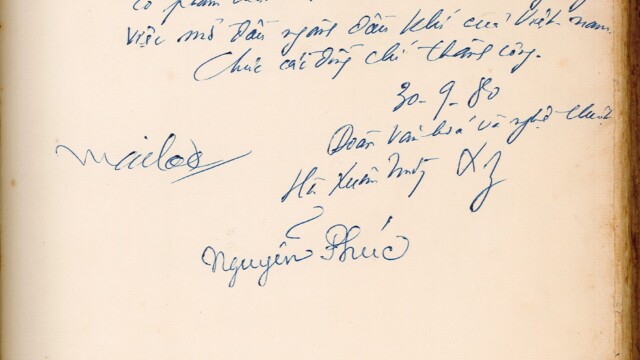 việc mở đầu ngành dầu khí của Việt nam.
Chúc các đồng chí thành công.
30-9-80
Đoàn Văn hoá và nghệ thuật
Hà Xuân Trường
Nguyễn Phúc